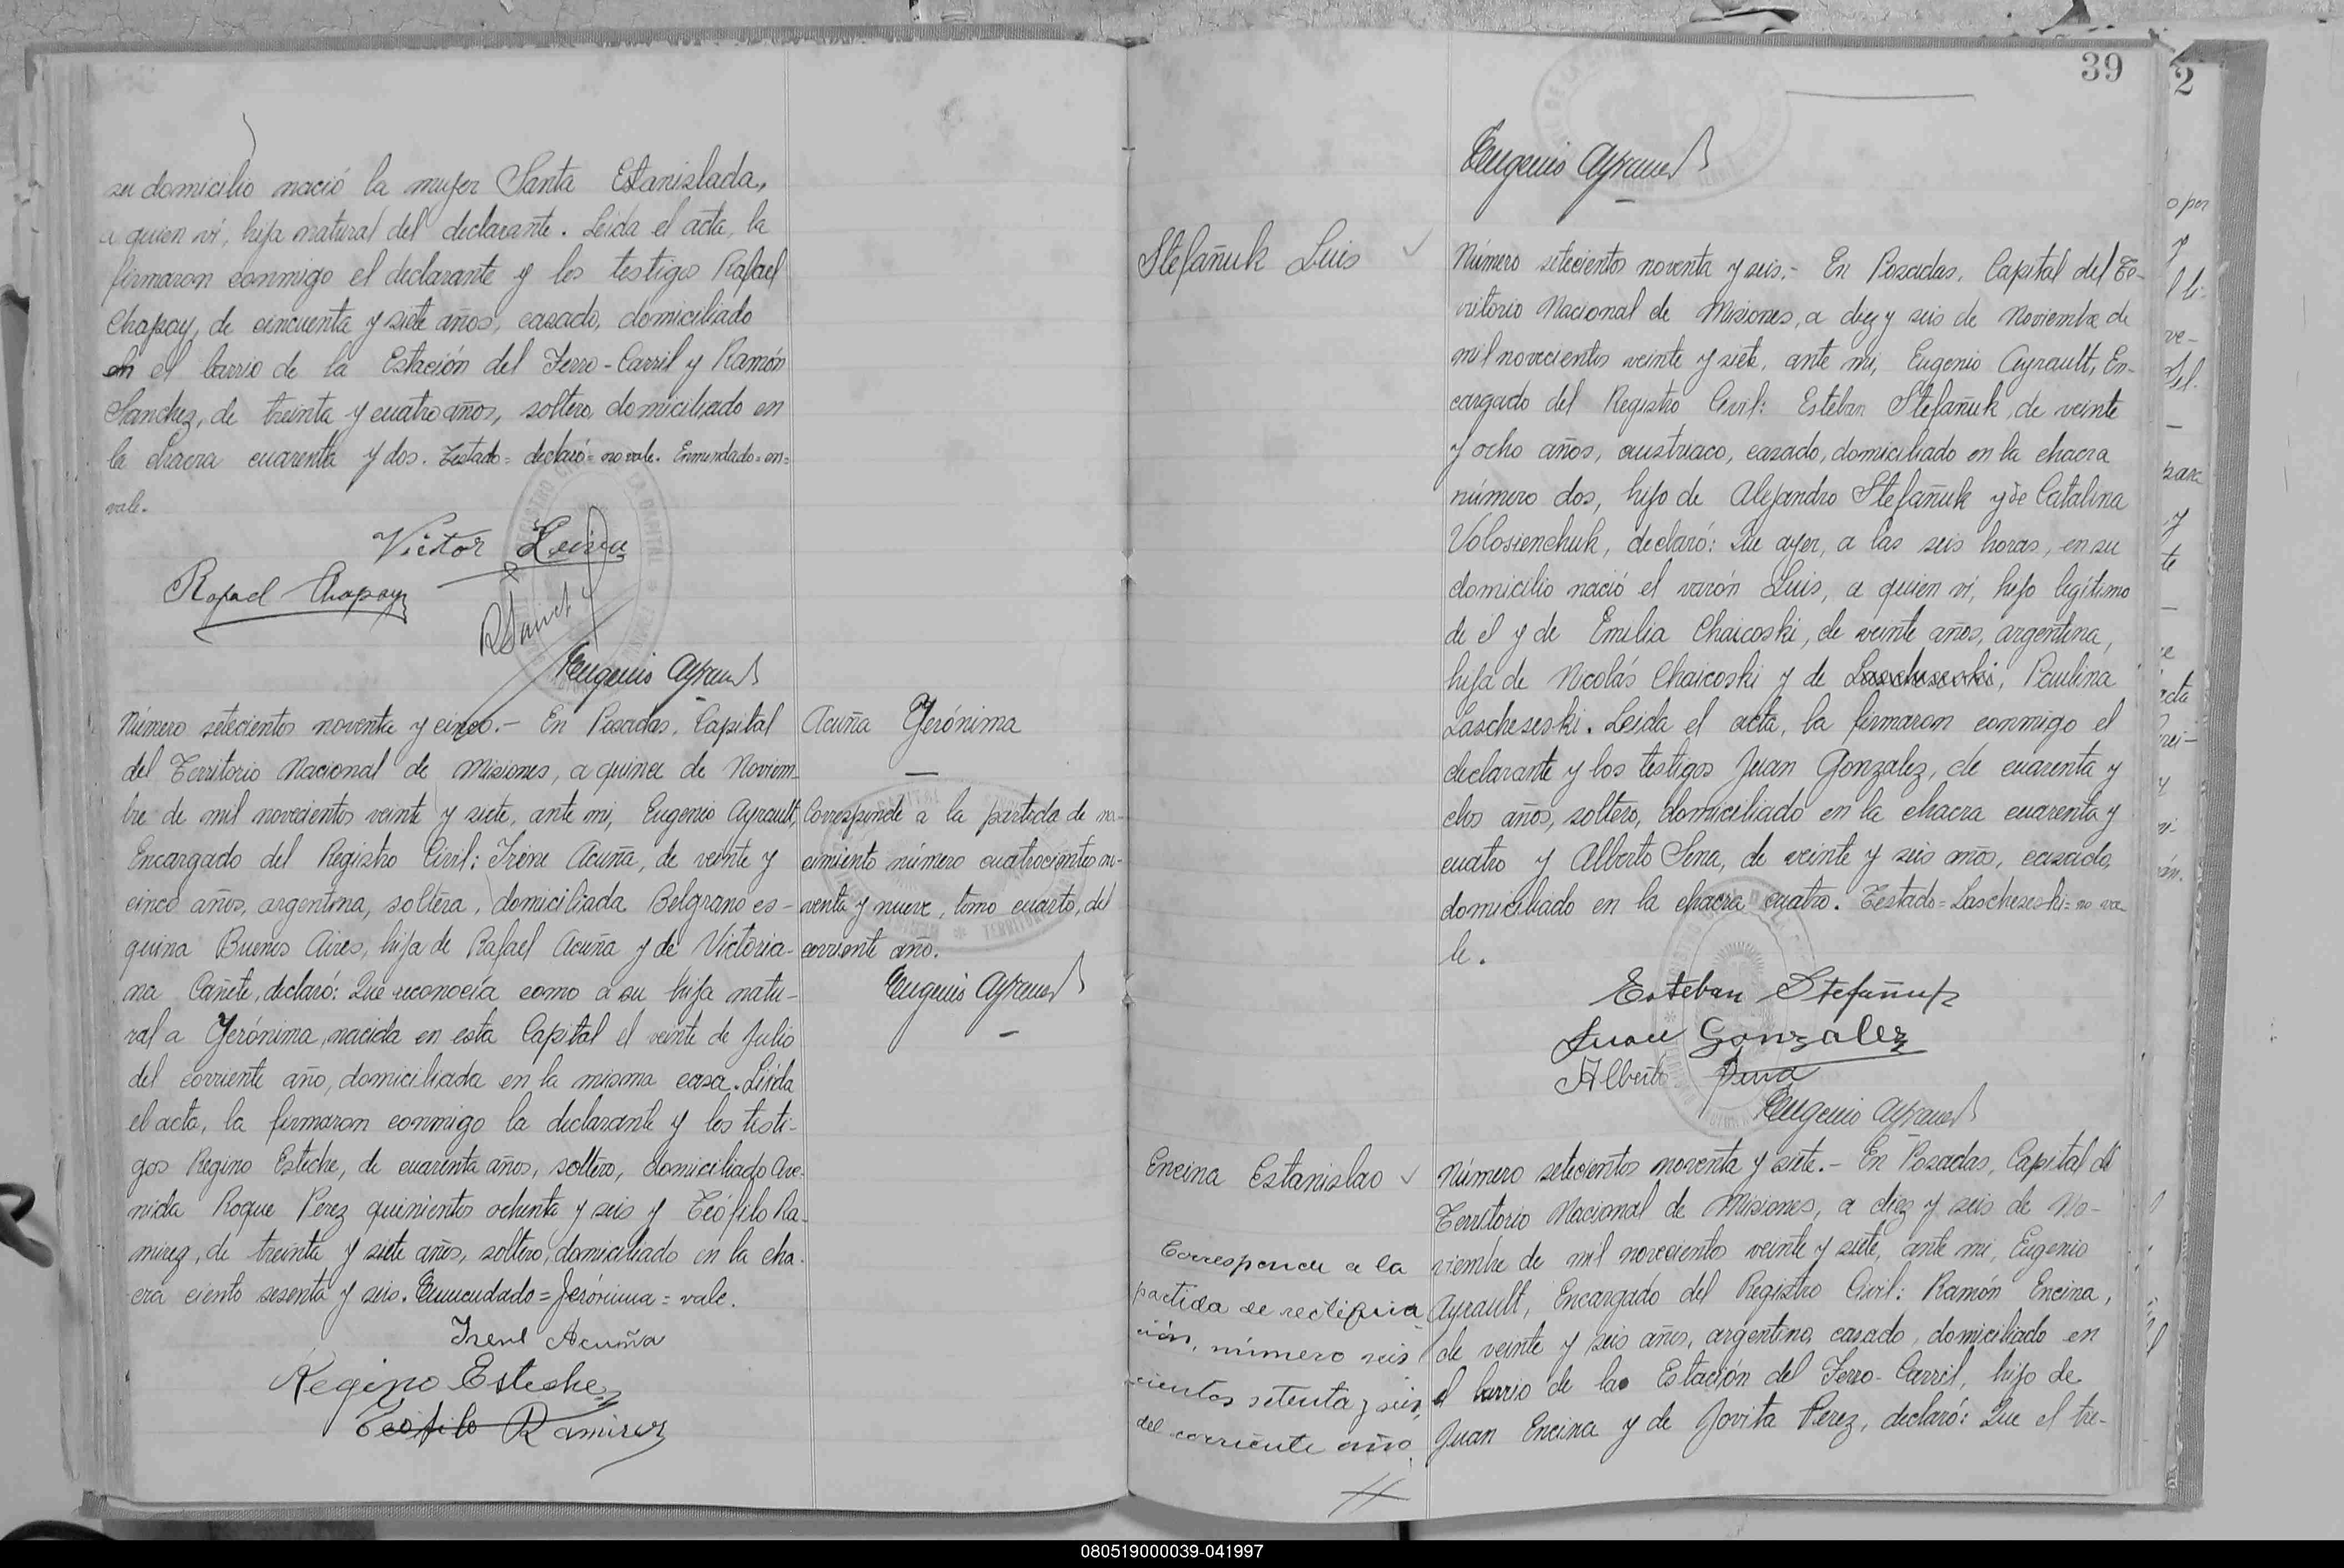 su domicilio nació la mujer Santa Estanislada,
a quien ví, hija natural del declarante. Leida el acta, la
firmaron conmigo el declarante y los testigos Rafael
Chapay, de cincuenta y siete años, casado, domiciliado
en el barrio de la Estación del Ferro-Carril y Ramón
Sanchez, de treinta y cuatro años, soltero, domiciliado en
la chacra cuarenta y dos. Testado = declaró = no vale. Enmendado = en =
vale.
Victor Leiva
Rafael Chapay
R Sanchez
Eugenio Ayrault
Número setecientos noventa y cinco.- En Posadas, Capital
del Territorio Nacional de Misiones, a quince de Noviem-
bre de mil novecientos veinte y siete, ante mi, Eugenio Ayrault,
Encargado del Registro Civil: Irene Acuña, de veinte y
cinco años, argentina, soltera, domiciliada Belgrano es-
quina Buenos Aires, hija de Rafael Acuña y de Victoria-
na Cañete, declaró: Que reconocía como a su hija natu-
ral a Yerónima, nacida en esta Capital el veinte de Julio
del corriente año, domiciliada en la misma casa. Leida
el acta, la firmaron conmigo la declarante y los testi-
gos Regino Esteche, de cuarenta años, soltero, domiciliado Ave-
nida Roque Perez quinientos ochenta y seis y Teófilo Ra-
mirez, de treinta y siete años, soltero, domiciliado en la cha-
cra ciento sesenta y seis. Enmendado = Jerónima = vale.
Irene Acuña
Regino Esteche
Teófilo Ramirez
Acuña Yerónima
Corresponde a la partida de na-
cimiento número cuatrocientos no-
venta y nueve, tomo cuarto, del
corriente año.
Eugenio Ayrault
39
2
Eugenio Ayrault
Stefañuk Luis
Número setecientos noventa y seis.- En Posadas, Capital del Te-
rritorio Nacional de Misiones, a diez y seis de Noviembre de
mil novecientos veinte y siete, ante mi, Eugenio Ayrault, En-
cargado del Registro Civil: Esteban Stefañuk, de veinte
y ocho años, austriaco, casado, domiciliado en la chacra
número dos, hijo de Alejandro Stefañuk y de Catalina
Volosienchuk, declaró: Que ayer, a las seis horas, en su
domicilio nació el varón Luis, a quien ví, hijo legítimo
de él y de Emilia Chaicoski, de veinte años, argentina,
hija de Nicolás Chaicoski y de Lascheseski, Paulina
Lascheseski. Leida el acta, la firmaron conmigo el
declarante y los testigos Juan Gonzalez, de cuarenta y
dos años, soltero, domiciliado en la chacra cuarenta y
cuatro y Alberto Sena, de veinte y seis años, casado,
domiciliado en la chacra cuatro. Testado = Lascheseski = no va-
le.
Esteban Stefañuk
Juan Gonzalez
Alberto Sena
Eugenio Ayrault
Encina Estanislao
Corresponde a la
partida de rectifica
ción, número seis
cientos setenta y seis,
del corriente año.
Número setecientos noventa y siete.- En Posadas, Capital del
Territorio Nacional de Misiones, a diez y seis de No-
viembre de mil novecientos veinte y siete, ante mi, Eugenio
Ayrault, Encargado del Registro Civil: Ramón Encina,
de veinte y seis años, argentino, casado, domiciliado en
el barrio de la Estación del Ferro-Carril, hijo de
Juan Encina y de Jovita Perez, declaró: Que el tre-
080519000039-041997